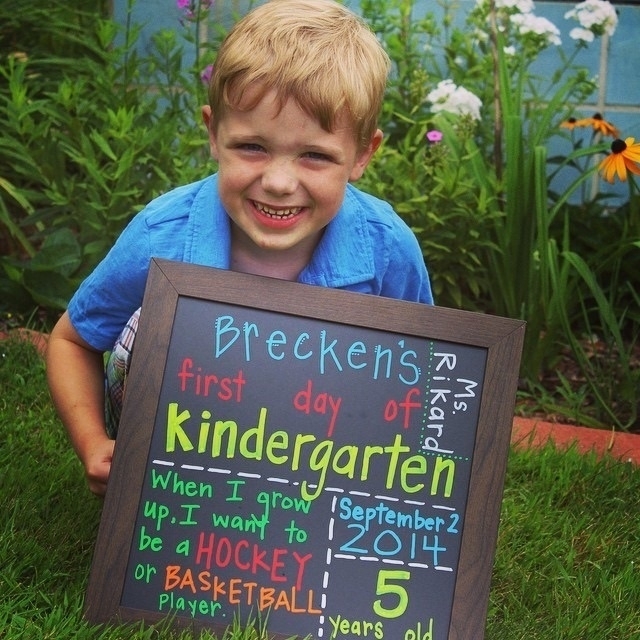 Brecken's
first day of
Kindergarten
Ms
Rikard
When I grow
up, I want to
be a HOCKEY
or BASKETBALL
player.
September 2
2014
5
years old